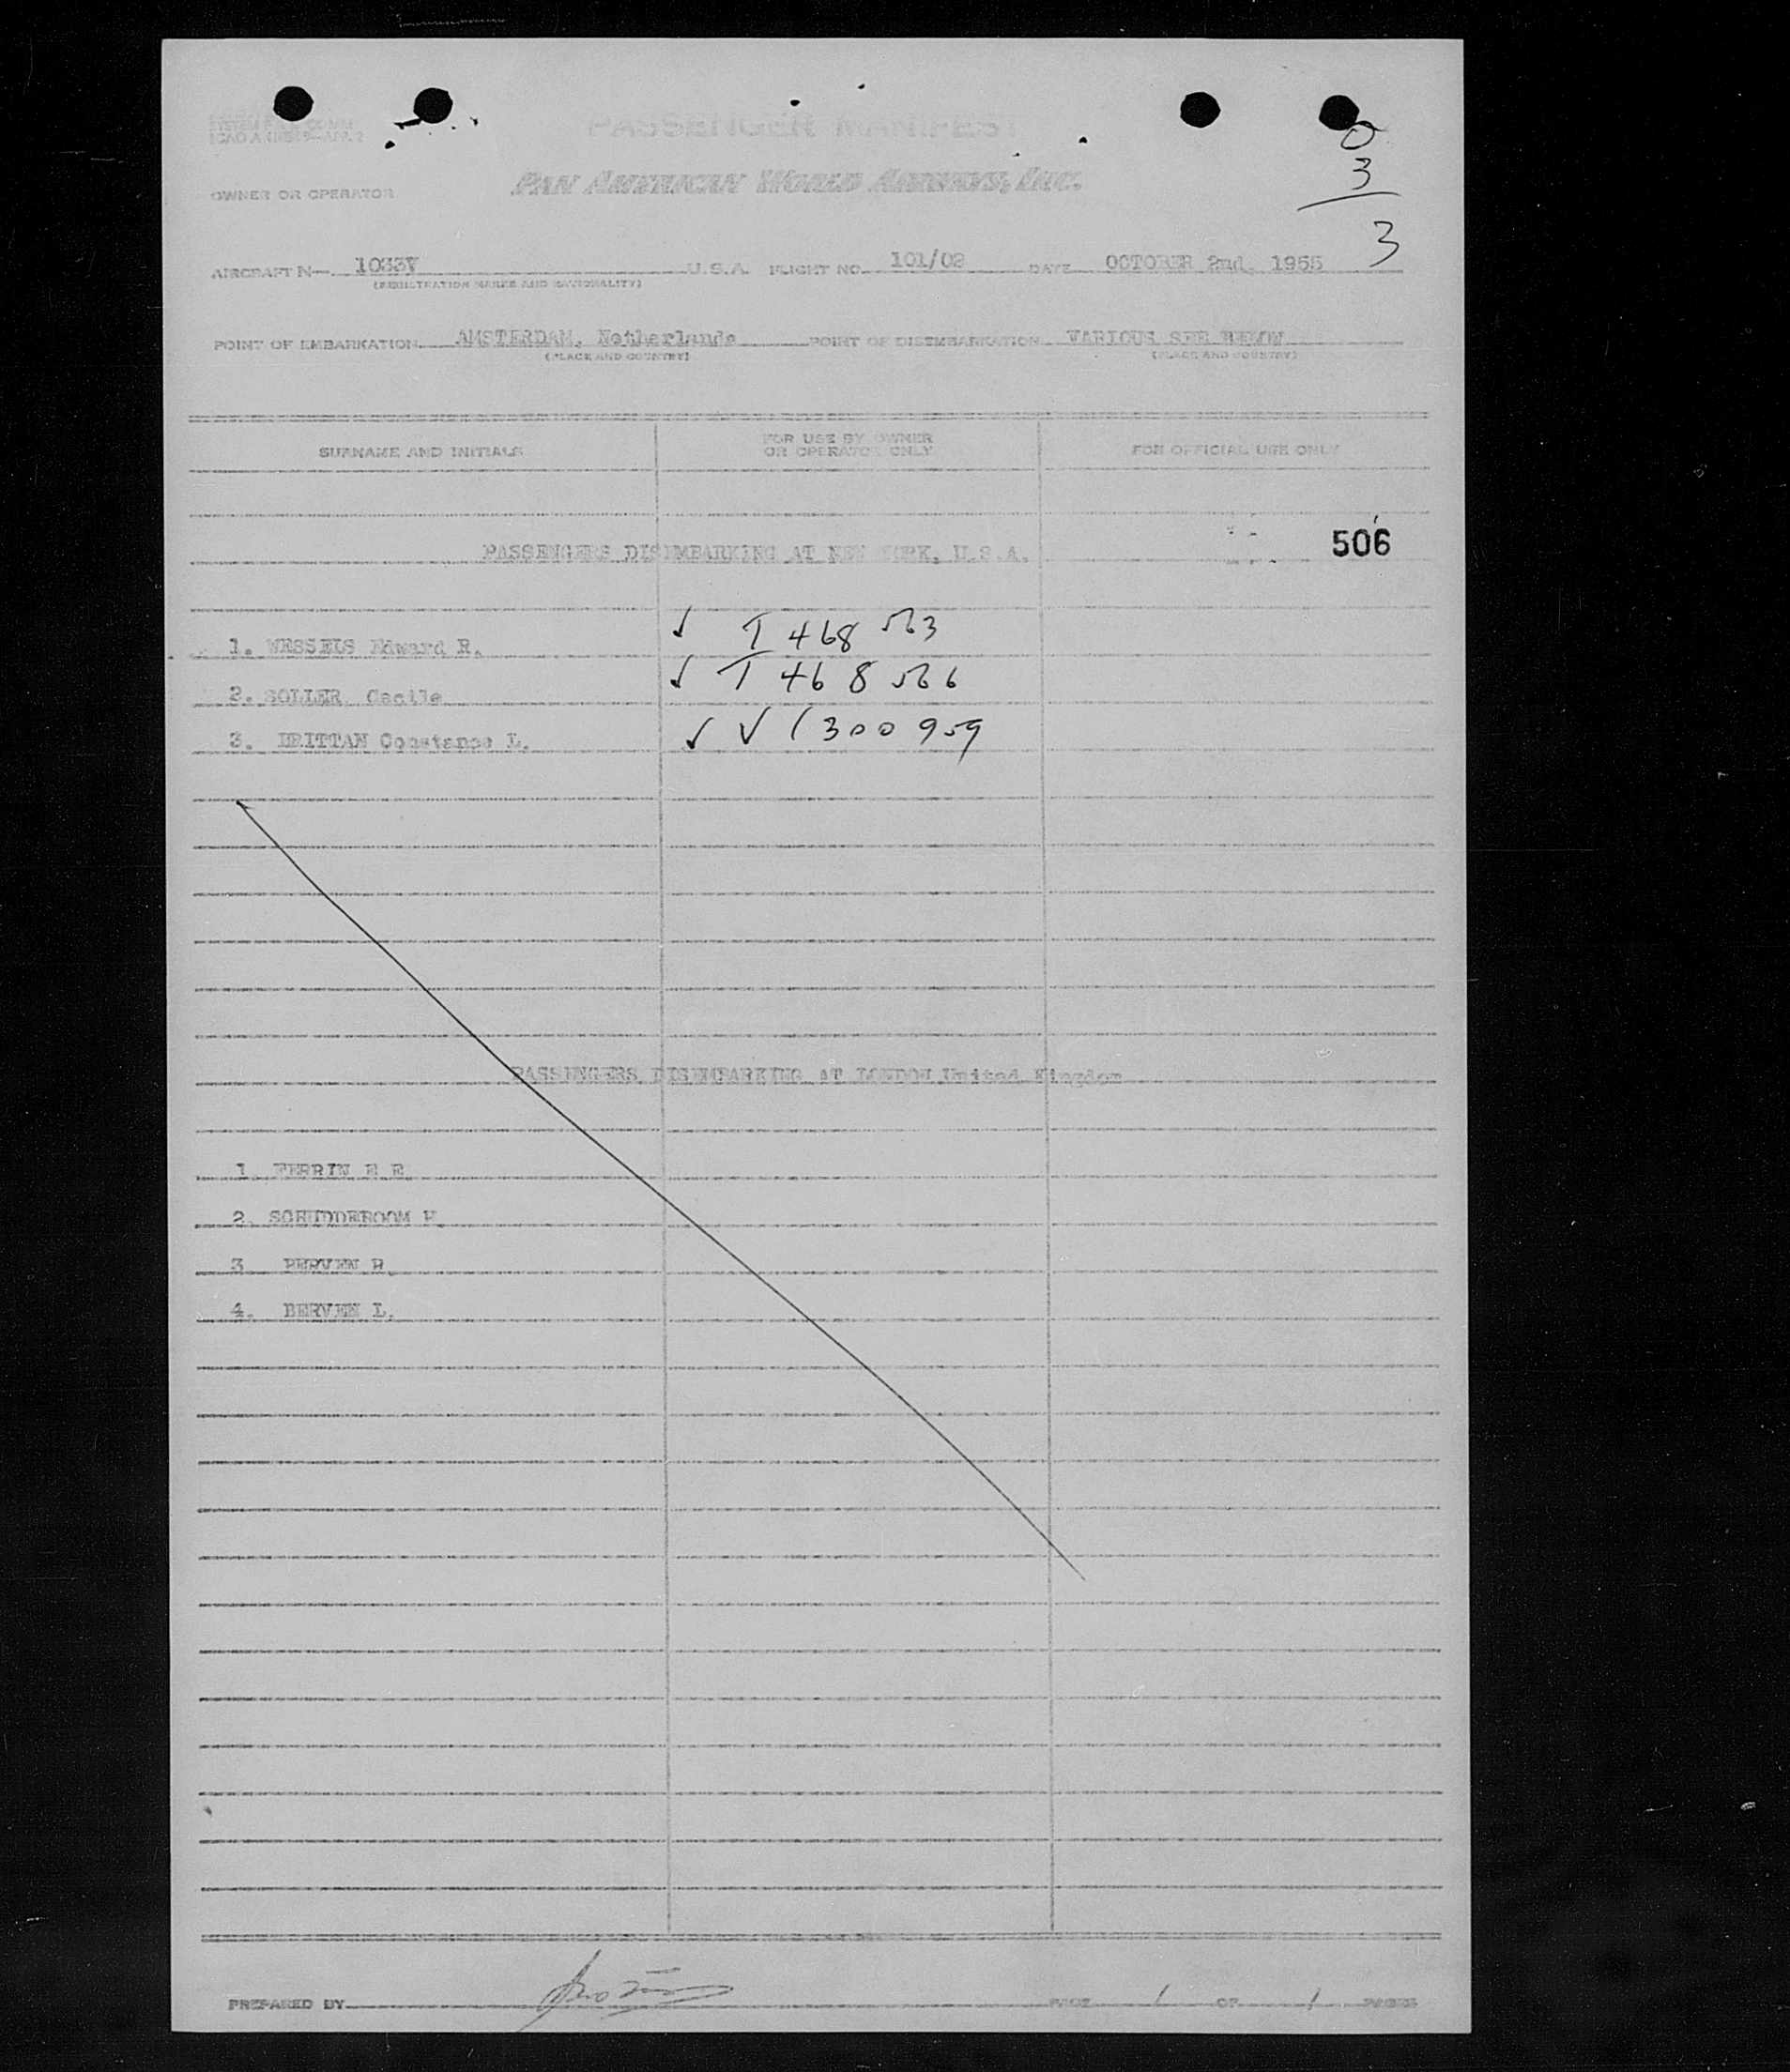 PASSENGER MANIFEST
0
3
3
OWNER OR OPERATOR PAN AMERICAN WORLD AIRWAYS, INC.
AIRCRAFT N— 1033V U.S.A. FLIGHT NO. 101/02 DATE OCTOBER 2nd, 1955
(REGISTRATION MARKS AND NATIONALITY)
POINT OF EMBARKATION AMSTERDAM, Netherlands POINT OF DISEMBARKATION VARIOUS SEE BELOW
(PLACE AND COUNTRY) (PLACE AND COUNTRY)
SURNAME AND INITIALS FOR USE BY OWNER OR OPERATOR ONLY FOR OFFICIAL USE ONLY
506
PASSENGERS DISEMBARKING AT NEW YORK, U.S.A.
1. WESSELS Edward R. ✓ T 468 563
2. SOLLER Cecile ✓ T 468 566
3. BRITTAN Constance L. ✓ V 1300959
PASSENGERS DISEMBARKING AT LONDON United Kingdom
1. E E
2. SCHUDDEBOOM H.
3. BERVEN H.
4. BERVEN L.
PREPARED BY PAGE 1 OF 1 PAGES